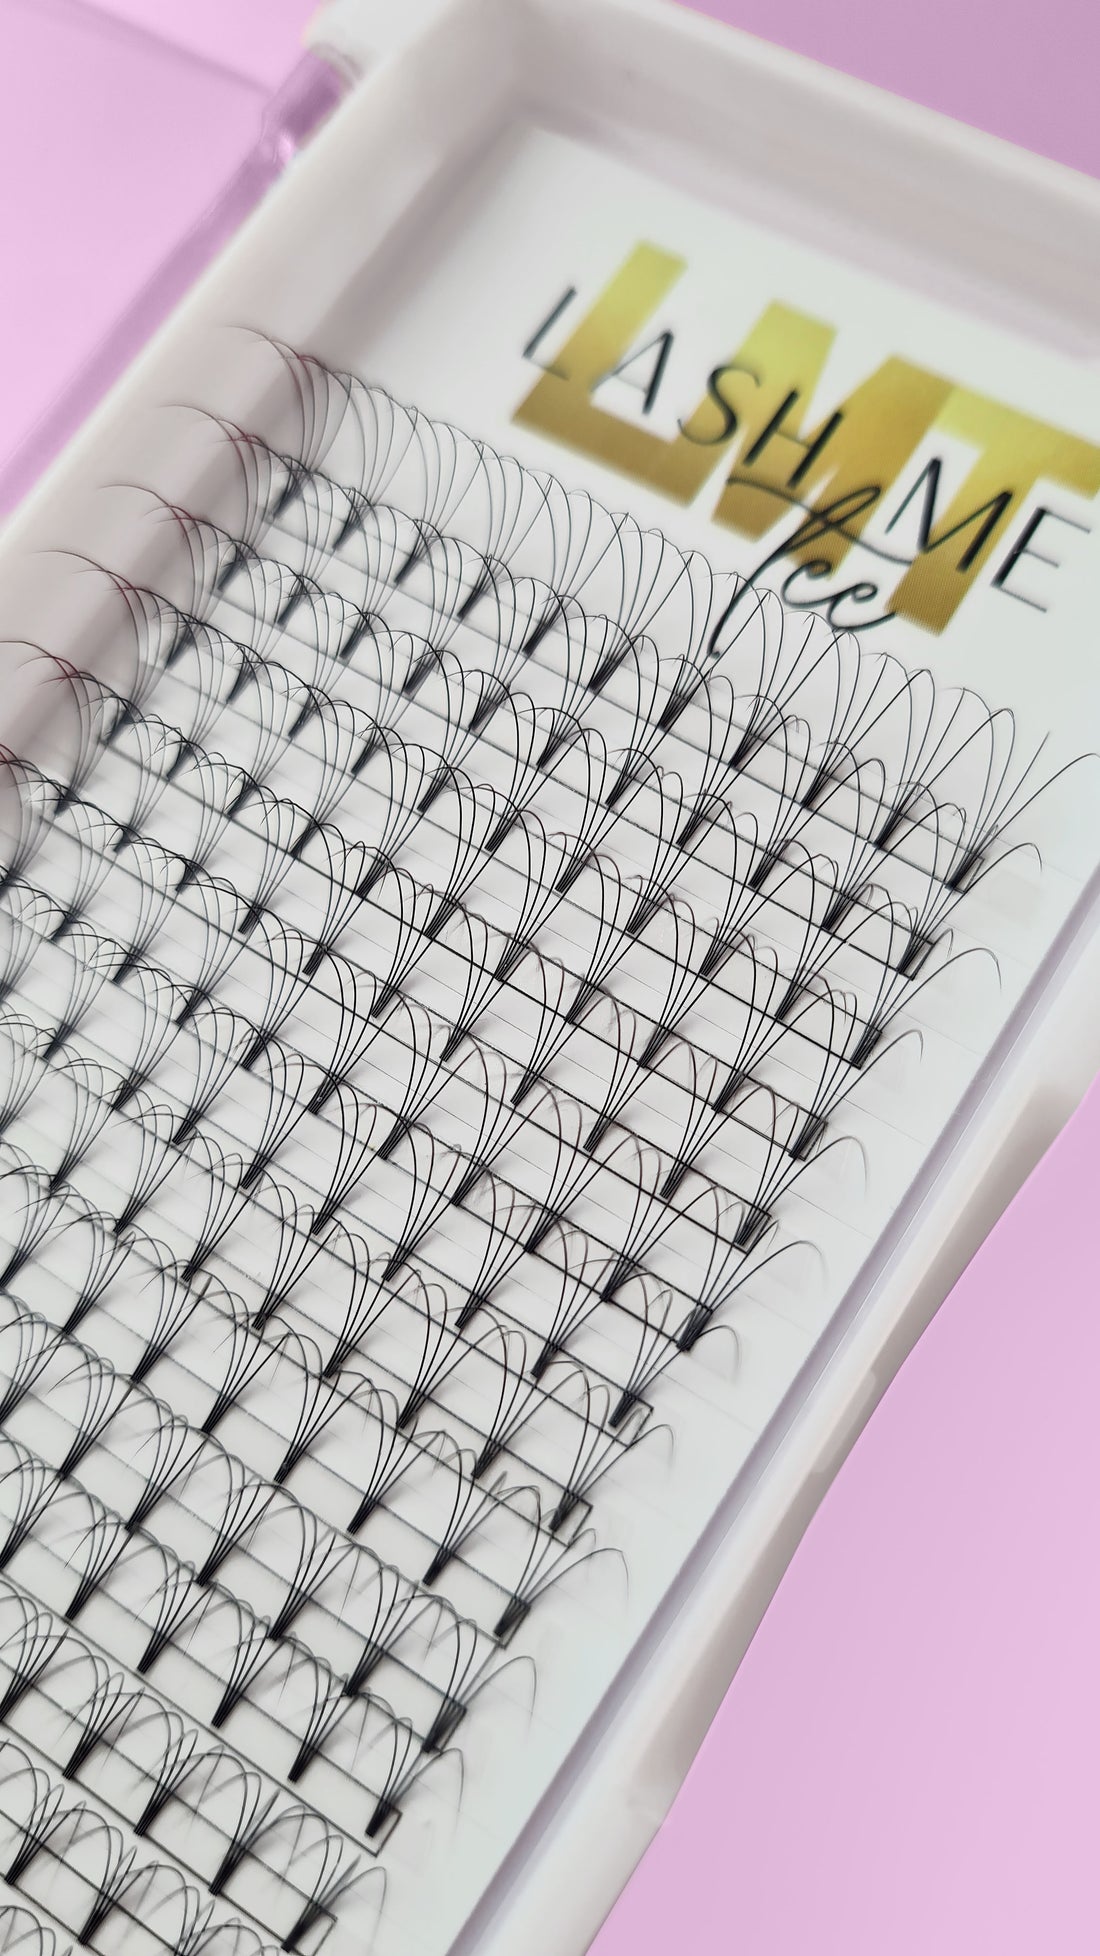 LMT
LASH ME
tee